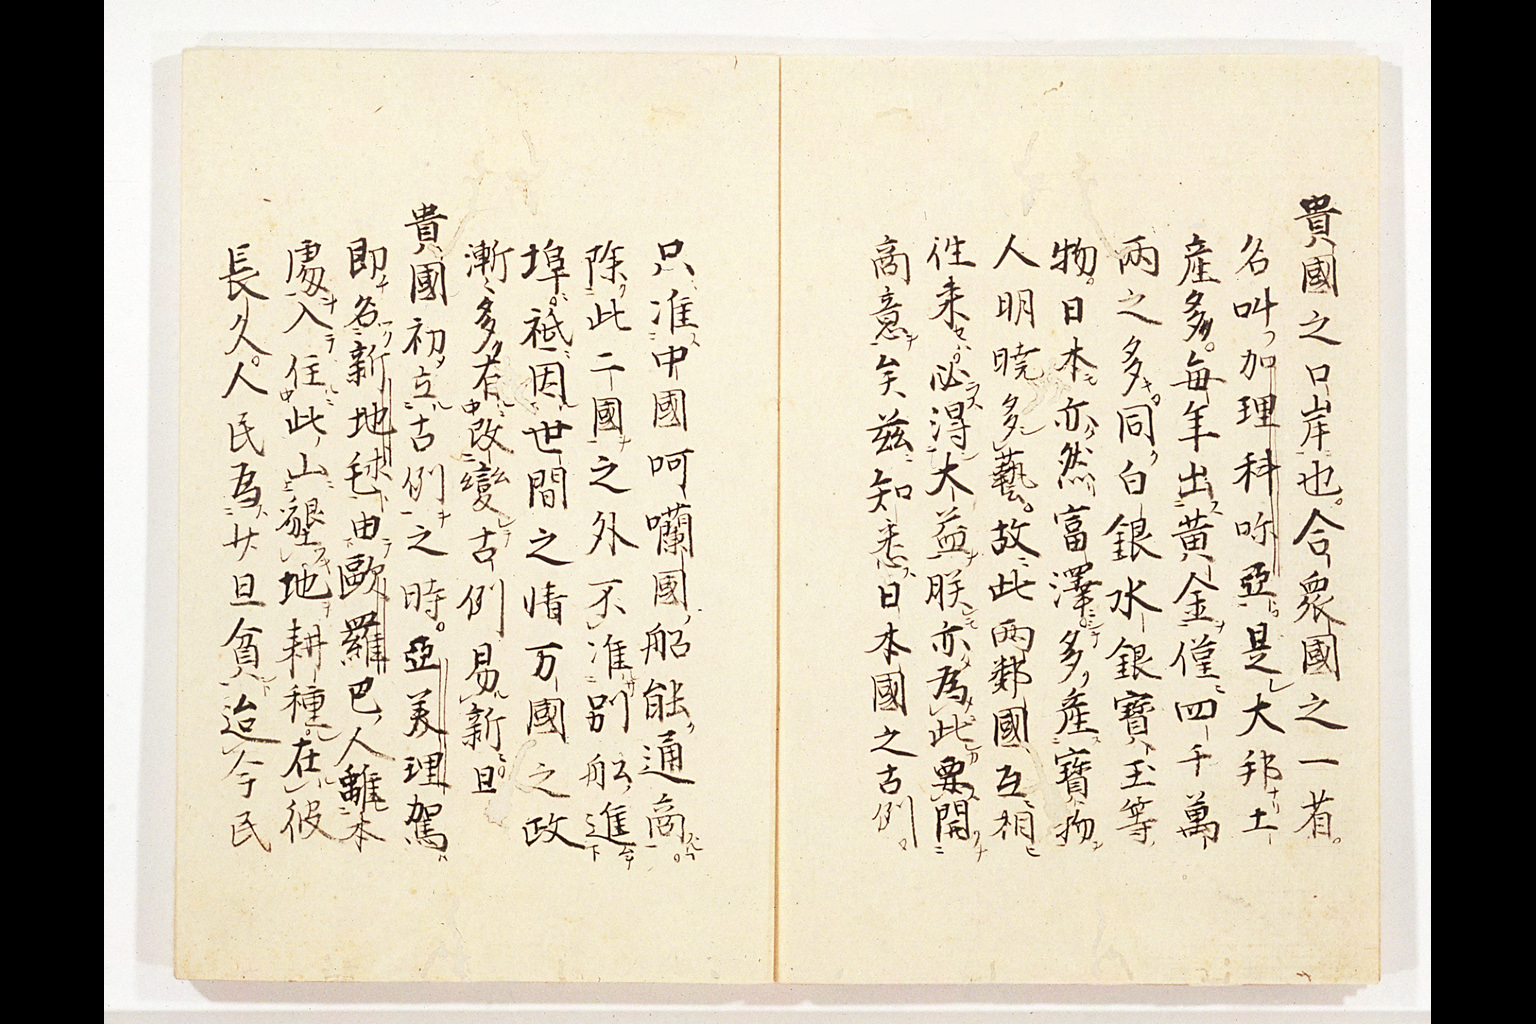 貴國之口岸也。合衆國之一省。
名叫加理科㖇亞是大邦土
産多。毎年出黄金僅四千萬
兩之多。同白銀水銀寶玉等
物。日本亦然富澤。多産寶物
人明暁多藝。故此両鄰國互相
徃来必得大益朕亦為此要開
商意矣兹知悉日本國之古例。
只准中國呵囒國船能通商。
除此二國之外不准別船進
埠。祗因世間之情万國之政
漸々多有改變古例易新旦
貴國初立古例之時。亞美理駕
即名新地毬由歐羅巴人離本
處入住此山墾地耕種。在彼
長久。人民為廿旦貧迨今民